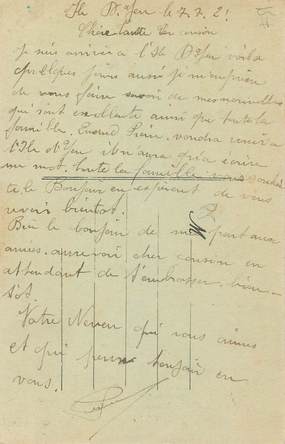 Ile D'Yeu le 7.7.2!
Chère tante et cousin
je suis arrivée a l'Ile D'Yeu voila
quelques jours aussi je m'empresse
de vous faire savoir de mes nouvelles
qui sont excellente ainsi que toute la
famille. Quand Pierre voudra venir a
l'Ile d'Yeu il n'aura qu'a écrire
un mot. toute la famille vous souhai
te le Bonjour en espérent de vous
revoir bientot.
Bien le bonjour de ma part aux
amies. aurevoir cher cousin en
attendant de t'embrasser bien-
tôt.
Votre Neveu qui vous aimes
et qui pense toujour en
vous.